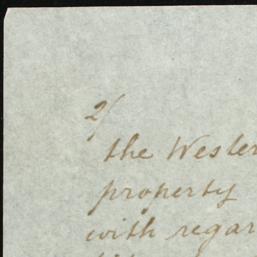 2/
the Wesler
property
with regar